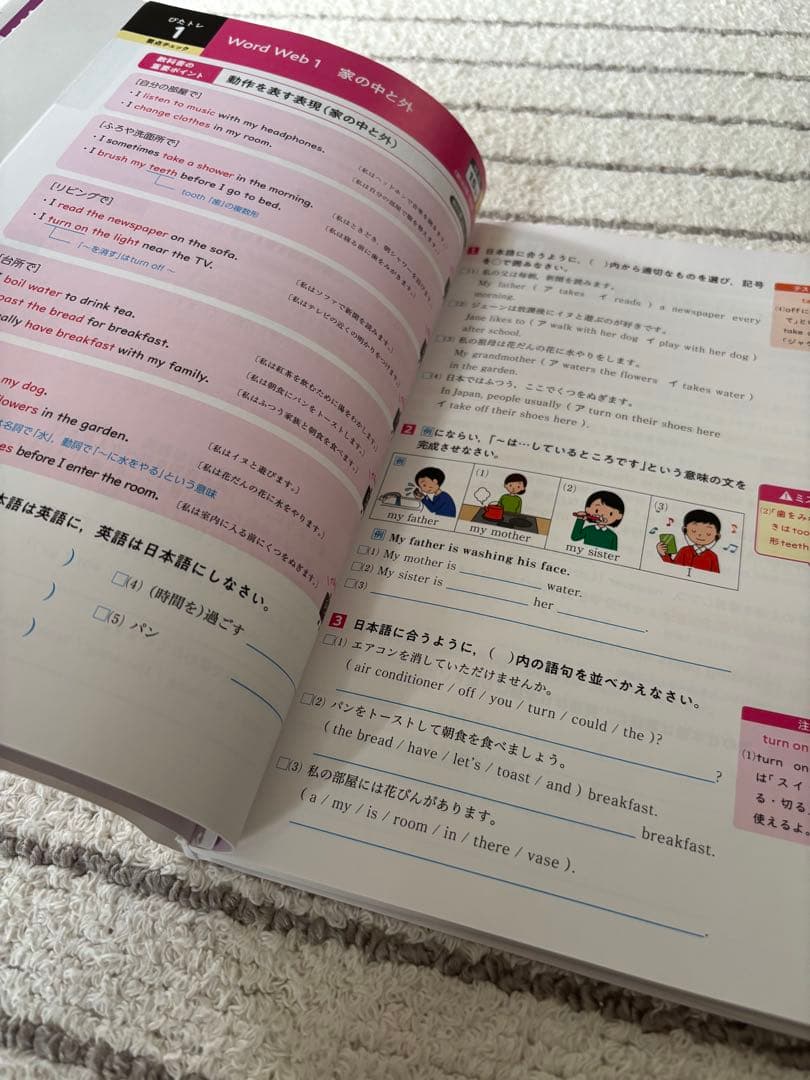 ぴたトレ
1
要点チェック
Word Web 1 家の中と外
教科書の
重要ポイント
動作を表す表現(家の中と外)
[自分の部屋で]
・I listen to music with my headphones.
・I change clothes in my room.
[ふろや洗面所で]
・I sometimes take a shower in the morning.
・I brush my teeth before I go to bed.
tooth「歯」の複数形
[リビングで]
・I read the newspaper on the sofa.
〔私はソファで新聞を読みます。〕
・I turn on the light near the TV.
〔私はテレビの近くの明かりをつけます。〕
「〜を消す」はturn off 〜
台所で]
boil water to drink tea.
〔私は紅茶を飲むために湯をわかします。〕
oast the bread for breakfast.
〔私は朝食にパンをトーストします。〕
ally have breakfast with my family.
〔私はふつう家族と朝食を食べます。〕
my dog.
〔私はイヌと遊びます。〕
flowers in the garden.
〔私は花だんの花に水をやります。〕
は名詞で「水」,動詞で「〜に水をやる」という意味
es before I enter the room.
〔私は室内に入る前にくつをぬぎます。〕
本語は英語に,英語は日本語にしなさい。
)
□(4) (時間を)過ごす
)
□(5) パン
)
1 日本語に合うように,( )内から適切なものを選び,記号
を○で囲みなさい。
□(1) 私の父は毎朝,新聞を読みます。
My father ( ア takes イ reads ) a newspaper every
morning.
□(2) ジェーンは放課後にイヌと遊ぶのが好きです。
Jane likes to ( ア walk with her dog イ play with her dog )
after school.
□(3) 私の祖母は花だんの花に水やりをします。
My grandmother ( ア waters the flowers イ takes water )
in the garden.
□(4) 日本ではふつう,ここでくつをぬぎます。
In Japan, people usually ( ア turn on their shoes here
イ take off their shoes here ).
2 例にならい,「〜は…しているところです」という意味の文を
完成させなさい。
例
(1)
(2)
(3)
my father
my mother
my sister
I
例 My father is washing his face.
□(1) My mother is water.
□(2) My sister is her .
□(3)
3 日本語に合うように,( )内の語句を並べかえなさい。
□(1) エアコンを消していただけませんか。
( air conditioner / off / you / turn / could / the )?
?
□(2) パンをトーストして朝食を食べましょう。
( the bread / have / let's / toast / and ) breakfast.
breakfast.
□(3) 私の部屋には花びんがあります。
( a / my / is / room / in / there / vase ).
.
テス
ta
(4)offに
て」とい
take o
「ジャケ
ミス
(2)「歯をみ
きはtoo
形teeth
注
turn on
(1)turn on
は「スイ
る・切る
使えるよ。